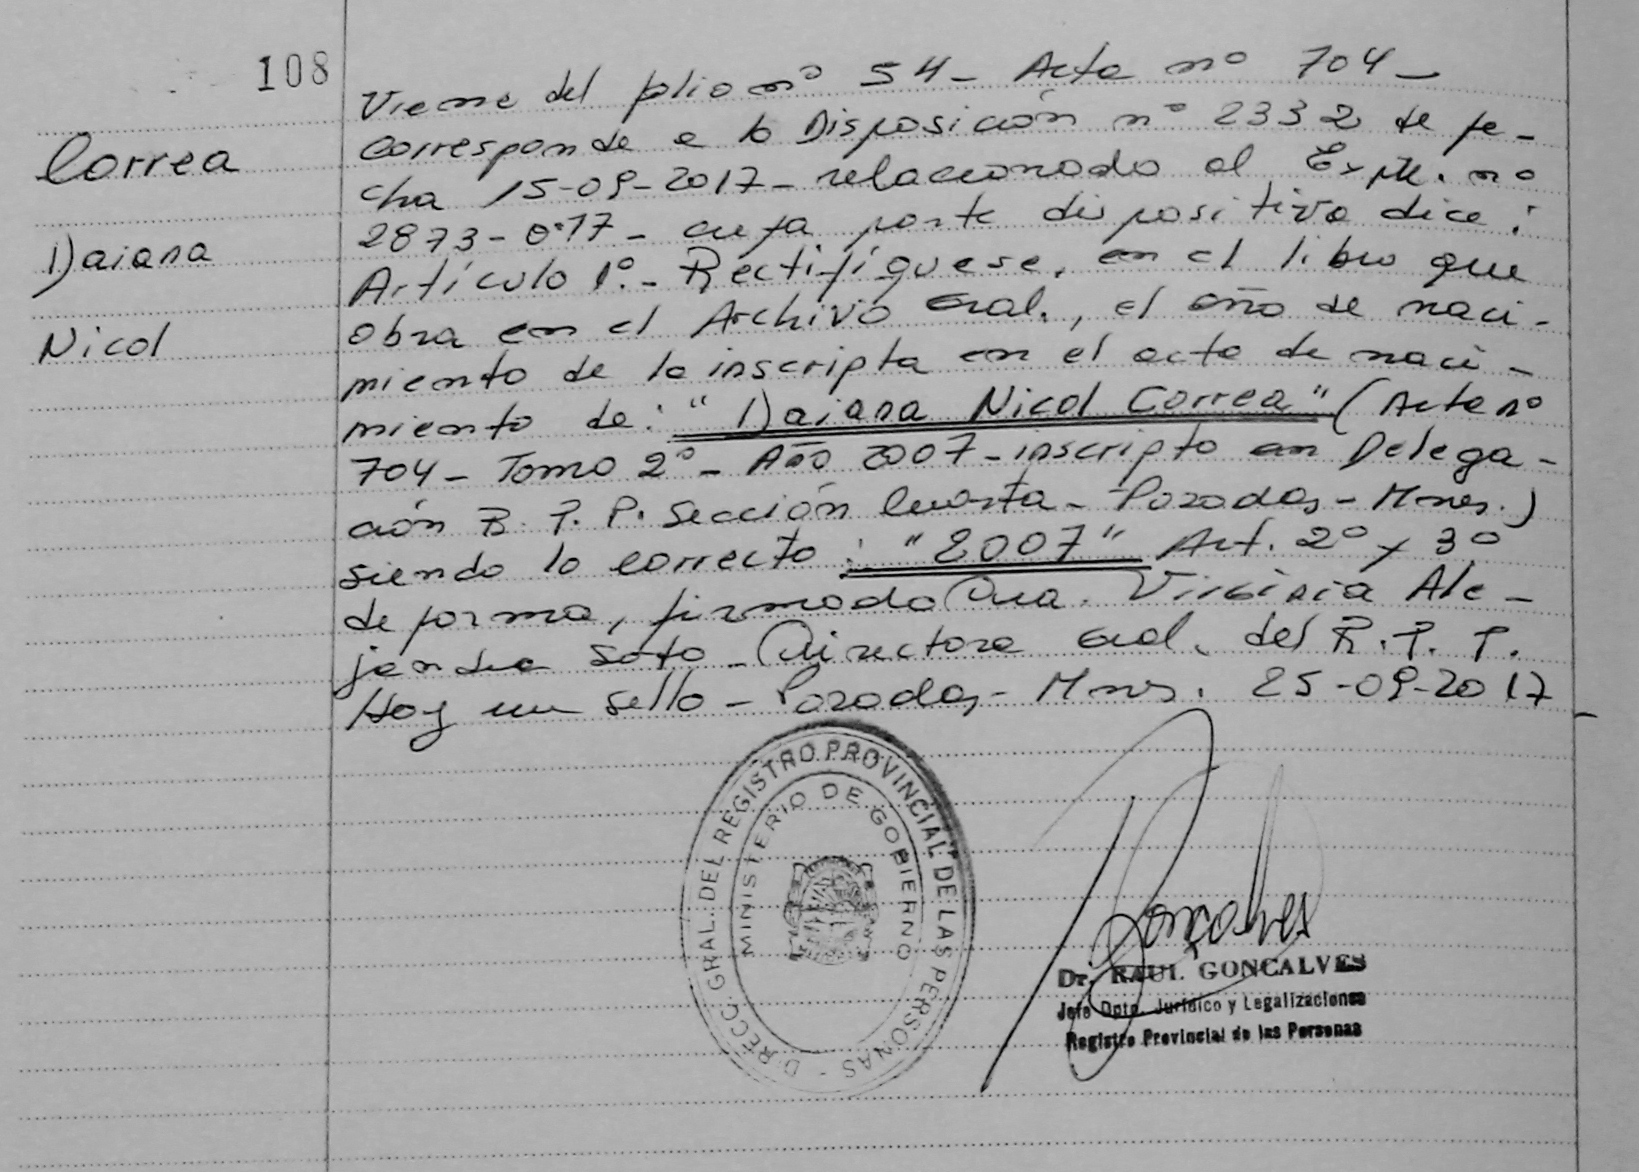 108
Correa
Daiana
Nicol
Viene del folio nº 54- Acta nº 704-
Corresponde a la Disposición nº 2332 de fe-
cha 15-09-2017- relacionado al Expte. nº
2873-0-17- cuya parte dispositiva dice:
Artículo 1º.- Rectifíquese, en el libro que
obra en el Archivo Gral., el año de naci-
miento de la inscripta en el acta de naci-
miento de: "Daiana Nicol Correa" (Acta nº
704- Tomo 2º- Año 2007- inscripto en Delega-
ción R. P. P. Sección Cuarta- Posadas- Mnes.)
siendo lo correcto: "2007" Art. 2º y 3º
de forma, firmado Dra. Virginia Ale-
jandra Soto- Directora Gral. del R. P. P.
Hay un sello- Posadas- Mnes. 25-09-2017-
DIRECC. GRAL. DEL REGISTRO PROVINCIAL DE LAS PERSONAS -
MINISTERIO DE GOBIERNO
Gonçalves
Dr. RAUL GONCALVES
Jefe Dpto. Jurídico y Legalizaciones
Registro Provincial de las Personas